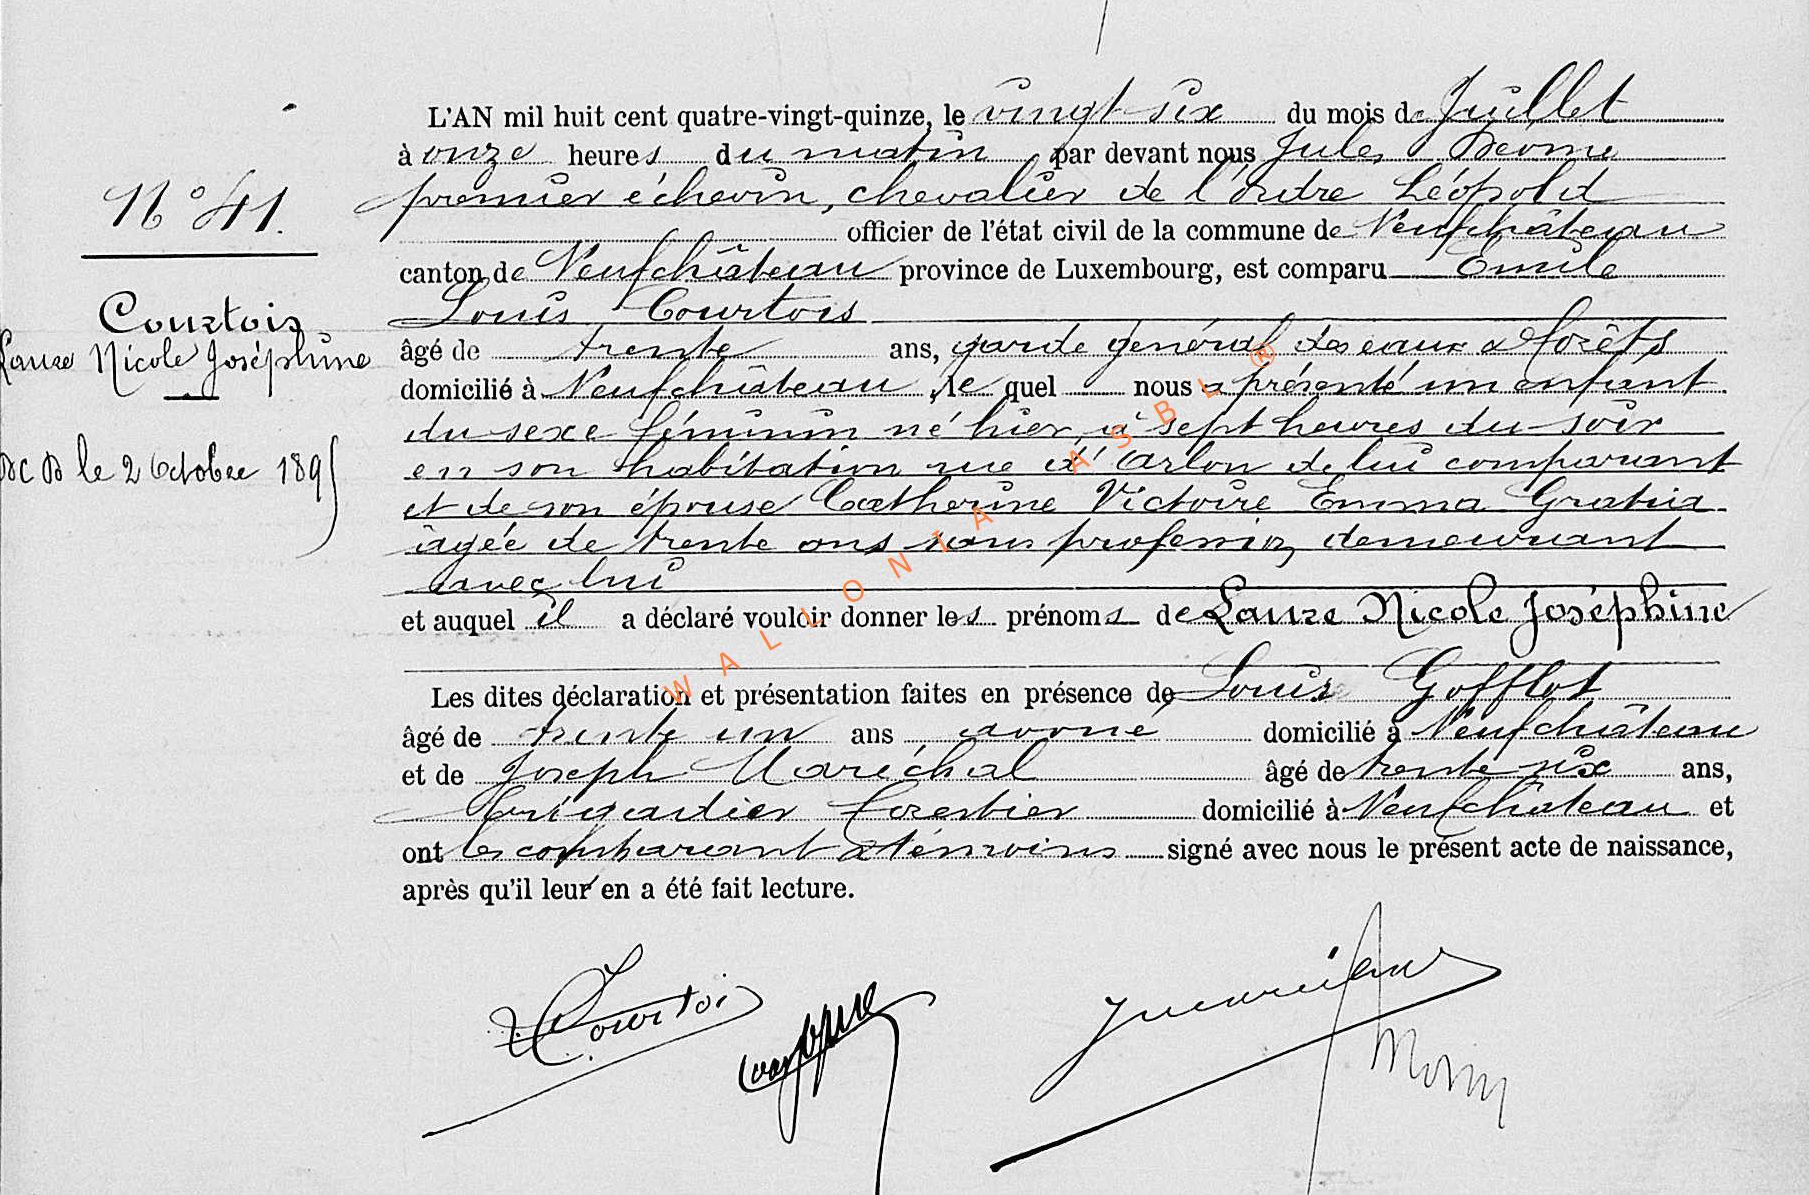 L'AN mil huit cent quatre-vingt-quinze, le vingt six du mois de Juillet
à onze heures du matin par devant nous Jules
premier échevin, chevalier de l'ordre Léopold
officier de l'état civil de la commune de Neufchâteau
canton de Neufchâteau province de Luxembourg, est comparu Emile
Louis Courtois
âgé de trente ans, garde général des eaux & forêts
domicilié à Neufchâteau, le quel nous a présenté un enfant
du sexe féminin né hier, à sept heures du soir
en son habitation rue d'Arlon de lui comparant
et de son épouse Catherine Victoire Emma Gratia
âgée de trente ans sans profession, demeurant
avec lui
et auquel il a déclaré vouloir donner les prénoms de Laure Nicole Joséphine
Les dites déclaration et présentation faites en présence de Louis Gofflot
âgé de trente un ans, avoué domicilié à Neufchâteau
et de Joseph Maréchal âgé de trente six ans,
brigadier forestier domicilié à Neufchâteau et
ont les comparant & témoins signé avec nous le présent acte de naissance,
après qu'il leur en a été fait lecture.
N° 41.
Courtois
Laure Nicole Joséphine
le 2 Octobre 1895
WALLONIA ASBL ®
Courtois